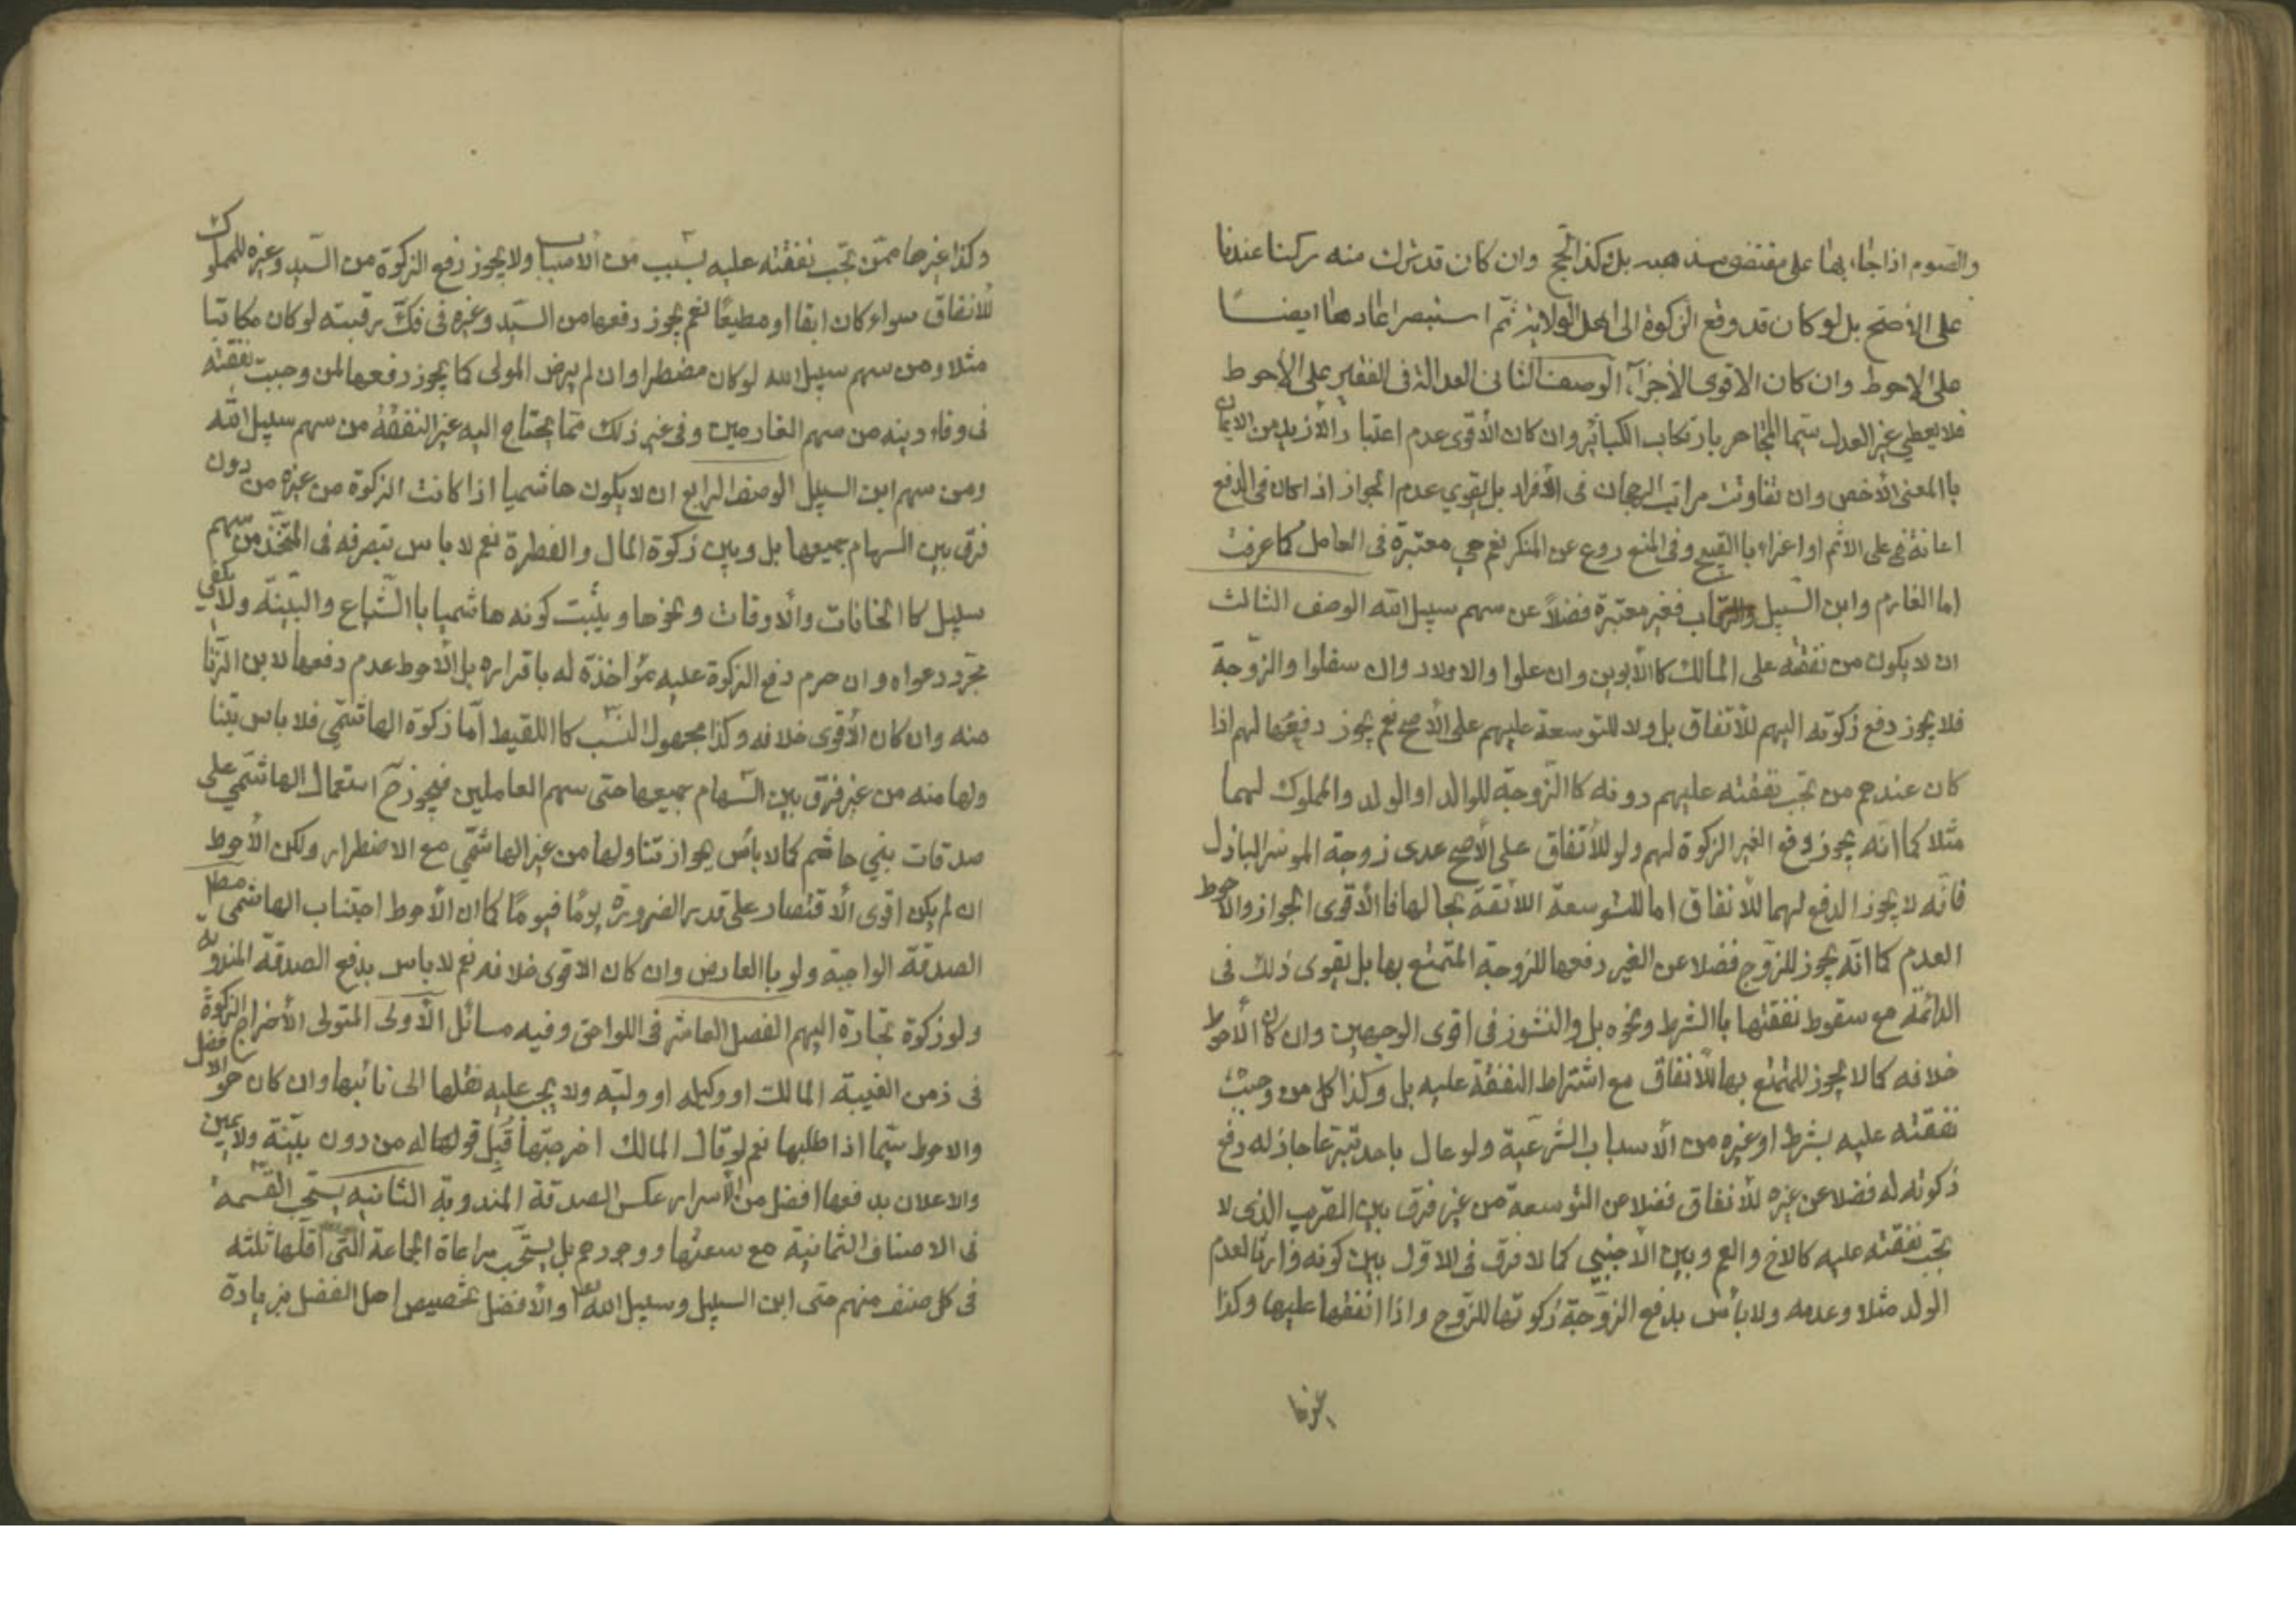 والصوم اذا جاء بها على مقتضى مذهبه بل وكذا الحج وان كان قد ترك منه ركنا عندنا
على الأصح بل لو كان قد دفع الزكوة الى اهل الولاية ثم استبصر اعادها ايضا
على الاحوط وان كان الاقوى الأجزآء الوصف الثانى العدالة فى الفقير على الأحوط
فلا يعطي غير العدل سيما المتجاهر بارتكاب الكبائر وان كان الأقوى عدم اعتبار الأزيد من الايمان
باالمعنى الأخص وان تفاوتت مراتب الرجحان فى الأفراد بل يقوي عدم الجواز اذا كان فى الدفع
اعانة على الاثم او اغراء باالقبيح وفى المنع ردع عن المنكر نعم هي معتبرة فى العامل كما عرفت
اما الغارم وابن السبيل والرقاب فغير معتبرة فضلاً عن سهم سبيل الله الوصف الثالث
ان لا يكون من نفقته على المالك كاالأبوين وان علوا والاولاد وان سفلوا والزوجة
فلا يجوز دفع زكوته اليهم للأنفاق بل ولا للتوسعة عليهم على الأصح نعم يجوز دفعها لهم اذا
كان عندهم من تجب نفقته عليهم دونه كاالزوجة للوالد او الولد والمملوك لهما
مثلا كما انه يجوز دفع الغير الزكوة لهم ولو للأنفاق على الأصح عدى زوجة الموسر الباذل
فانه لا يجوز الدفع لهما للأنفاق اما للتوسعة اللائقة بحالها فاالأقوى الجواز والأحوط
العدم كما انه يجوز للزوج فضلا عن الغير دفعها للزوجة المتمتع بها بل يقوى ذلك فى
الدائمة مع سقوط نفقتها باالشرط ونحوه بل والنشوز فى اقوى الوجهين وان كان الأحوط
خلافه كما لا يجوز للمتمتع بها للأنفاق مع اشتراط النفقة عليه بل وكذا كل من وجبت
نفقته عليه بشرط او غيره من الأسباب الشرعية ولو عال باحد تبرعا جاز له دفع
زكوته له فضلا عن غيره للأنفاق فضلا عن التوسعة من غير فرق بين القريب الذى لا
تجب نفقته عليه كالاخ والعم وبين الأجنبي كما لا فرق فى الاول بين كونه وارثا لعدم
الولد مثلا وعدمه ولا بأس بدفع الزوجة زكوتها للزوج واذا انفقها عليها وكذا
غيرها
وكذا غيرها ممن تجب نفقته عليه بسبب من الأسباب ولا يجوز دفع الزكوة من السيد وغيره للمملوك
للأنفاق سواء كان ابقا او مطيعًا نعم يجوز دفعها من السيد وغيره فى فك رقبته لو كان مكاتبا
مثلا ومن سهم سبيل الله لو كان مضطرا وان لم يرض المولى كما يجوز دفعها لمن وجبت نفقته
فى وفاء دينه من سهم الغارمين وفى غير ذلك مما يحتاج اليه غير النفقة من سهم سبيل الله
ومن سهم ابن السبيل الوصف الرابع ان لا يكون هاشميا اذا كانت الزكوة من غيره من دون
فرق بين السهام جميعها بل وبين زكوة المال والفطرة نعم لا باس بتصرفه فى المتخذ من سهم
سبيل كاالخانات والأوقات ونحوها ويثبت كونه هاشميا باالشياع والبينة ولا يكفي
مجرد دعواه وان حرم دفع الزكوة عليه مؤاخذة له باقراره بل الأحوط عدم دفعها لابن الزنا
منه وان كان الأقوى خلافه وكذا مجهول النسب كااللقيط اما زكوة الهاشمي فلا باس بتنا
ولها منه من غير فرق بين السهام جميعها حتى سهم العاملين فيجوز ح استعمال الهاشمي على
صدقات بني هاشم كما لا بأس بجواز تناولها من غير الهاشمي مع الاضطرار ولكن الأحوط
ان لم يكن اقوى الأقتصار على قدر الضرورة يومًا فيومًا كما ان الأحوط اجتناب الهاشمى مطلق
الصدقة الواجبة ولو باالعارض وان كان الاقوى خلافه نعم لا باس بدفع الصدقة المندوبة
ولو زكوة تجارة اليهم الفصل العاشر فى اللواحق وفيه مسائل الأولى المتولى الأخراج الزكوة
فى زمن الغيبة المالك او وكيله او وليه ولا يجب عليه نقلها الى نائبها وان كان هو الافضل
والاحوط سيما اذا طلبها نعم لو قال المالك اخرجتها قُبِل قوله من دون بينة ولا يمين
والاعلان بدفعها افضل من الأسرار عكس الصدقة المندوبة الثانيه يستحب القسمة
فى الاصناف الثمانية مع سعتها ووجودهم بل يستحب مراعاة الجماعة التى اقلها ثلثه
فى كل صنف منهم حتى ابن السبيل وسبيل الله والأفضل تخصيص اهل الفضل بزيادة